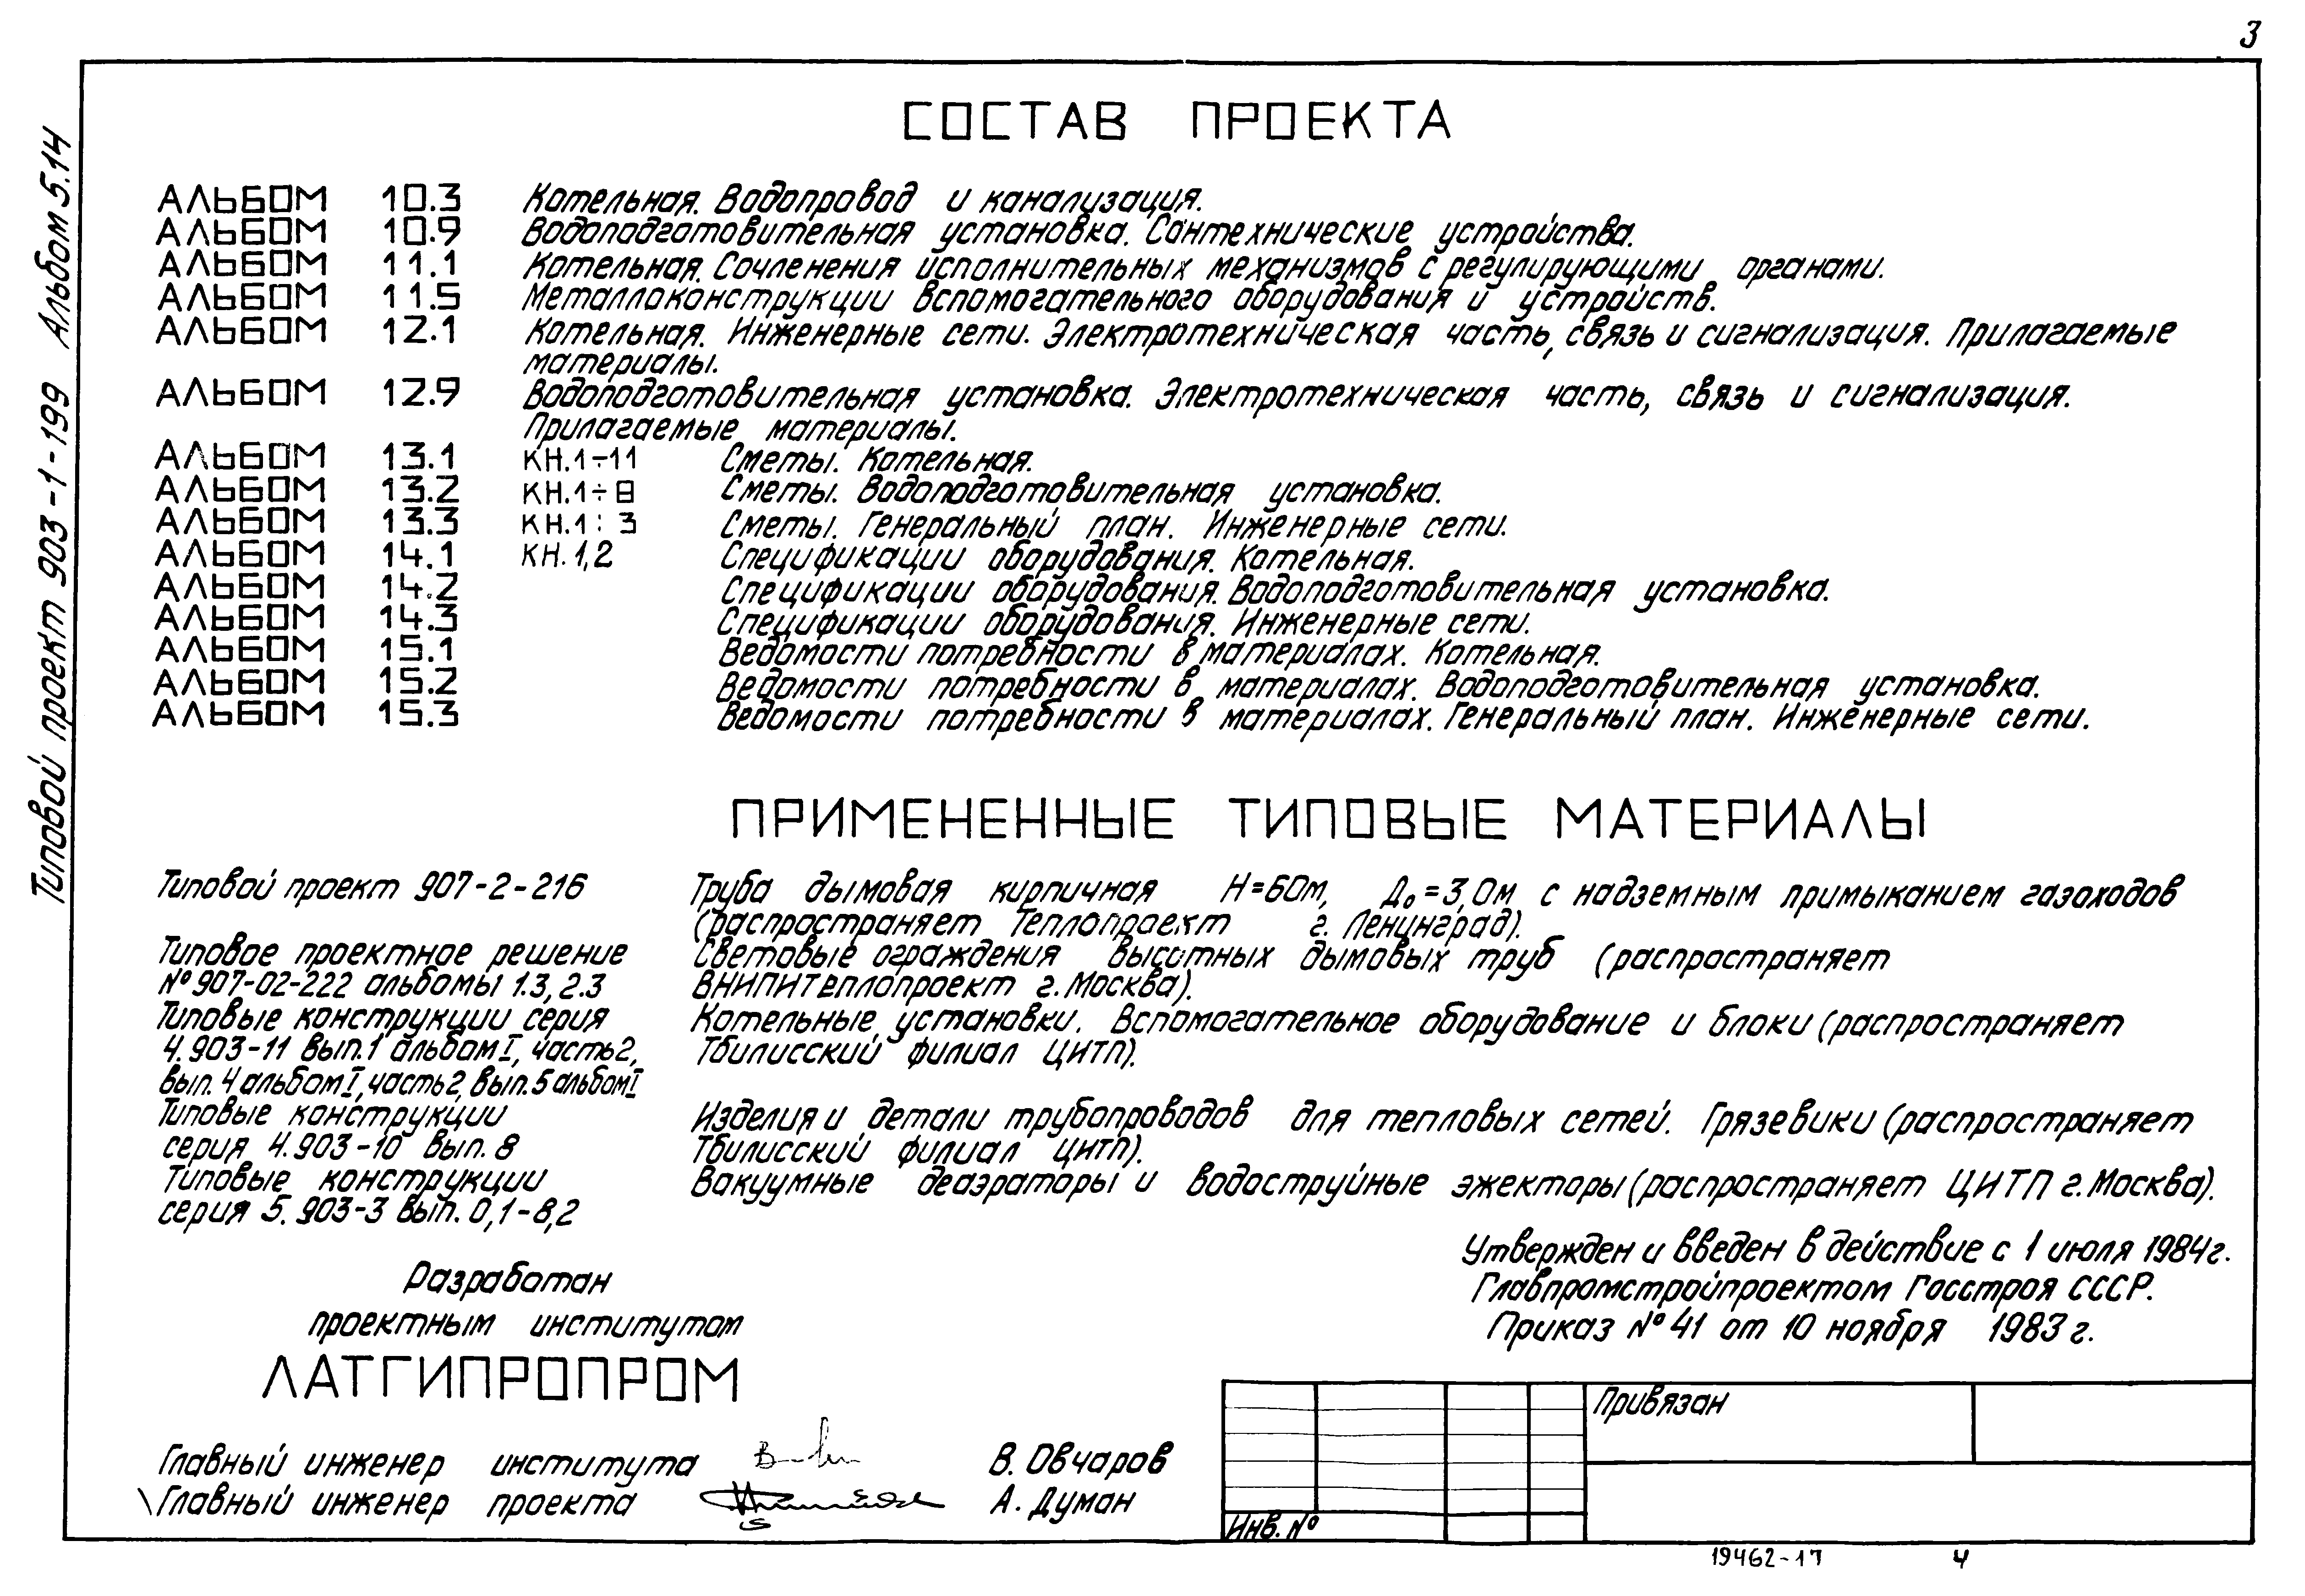 3
Типовой проект 903-1-199 Альбом 5.14
СОСТАВ ПРОЕКТА
АЛЬБОМ 10.3 Котельная. Водопровод и канализация.
АЛЬБОМ 10.9 Водоподготовительная установка. Сантехнические устройства.
АЛЬБОМ 11.1 Котельная. Сочленения исполнительных механизмов с регулирующими органами.
АЛЬБОМ 11.5 Металлоконструкции вспомогательного оборудования и устройств.
АЛЬБОМ 12.1 Котельная. Инженерные сети. Электротехническая часть, связь и сигнализация. Прилагаемые
материалы.
АЛЬБОМ 12.9 Водоподготовительная установка. Электротехническая часть, связь и сигнализация.
Прилагаемые материалы.
АЛЬБОМ 13.1 КН.1÷11 Сметы. Котельная.
АЛЬБОМ 13.2 КН.1÷8 Сметы. Водоподготовительная установка.
АЛЬБОМ 13.3 КН.1÷3 Сметы. Генеральный план. Инженерные сети.
АЛЬБОМ 14.1 КН.1,2 Спецификации оборудования. Котельная.
АЛЬБОМ 14.2 Спецификации оборудования. Водоподготовительная установка.
АЛЬБОМ 14.3 Спецификации оборудования. Инженерные сети.
АЛЬБОМ 15.1 Ведомости потребности в материалах. Котельная.
АЛЬБОМ 15.2 Ведомости потребности в материалах. Водоподготовительная установка.
АЛЬБОМ 15.3 Ведомости потребности в материалах. Генеральный план. Инженерные сети.
ПРИМЕНЕННЫЕ ТИПОВЫЕ МАТЕРИАЛЫ
Типовой проект 907-2-216 Труба дымовая кирпичная Н=60м, Д₀=3,0м с надземным примыканием газоходов
(распространяет Теплопроект г. Ленинград).
Типовое проектное решение Световые ограждения высотных дымовых труб (распространяет
№ 907-02-222 альбомы 1.3, 2.3 ВНИПИТеплопроект г. Москва).
Типовые конструкции серия Котельные установки. Вспомогательное оборудование и блоки (распространяет
4.903-11 вып.1 альбом I, часть 2, Тбилисский филиал ЦИТП).
вып. 4 альбом I, часть 2, вып. 5 альбом I
Типовые конструкции Изделия и детали трубопроводов для тепловых сетей. Грязевики (распространяет
серия 4.903-10 вып. 8 Тбилисский филиал ЦИТП).
Типовые конструкции Вакуумные деаэраторы и водоструйные эжекторы (распространяет ЦИТП г. Москва).
серия 5.903-3 вып. 0,1-8,2
Утвержден и введен в действие с 1 июля 1984г.
Главпромстройпроектом Госстроя СССР.
Приказ № 41 от 10 ноября 1983 г.
Разработан
проектным институтом
ЛАТГИПРОПРОМ
Главный инженер института В. Овчаров
Главный инженер проекта А. Думан
Привязан
Инв. №
19462-17 4